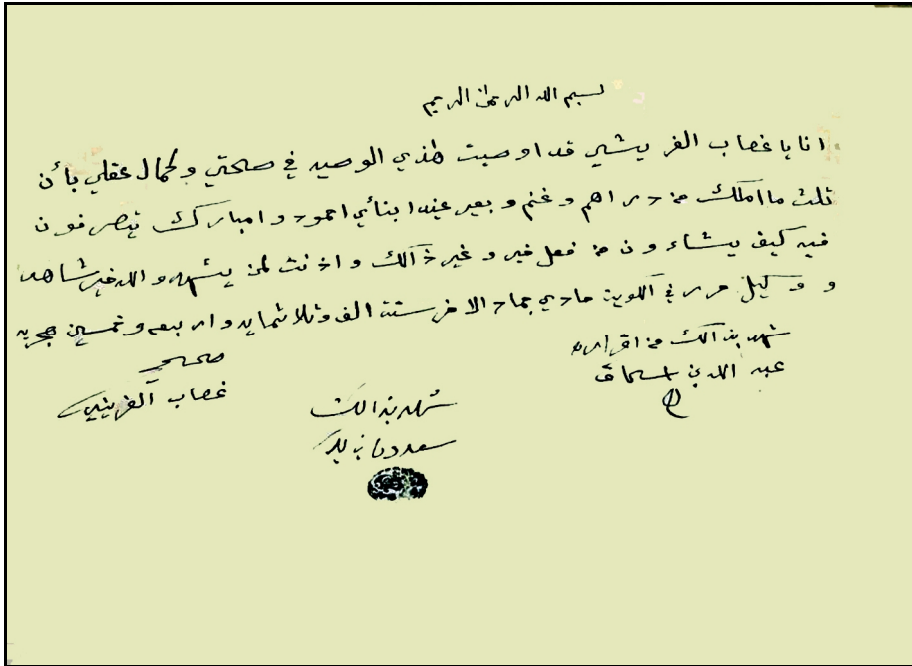 بسم الله الرحمن الرحيم
انا يا غصاب الفريشي قد اوصيت هذي الوصيه في صحتي وكمال عقلي بأن
ثلث ما املك من دراهم وغنم وبعير عند ابنائي احمود وامبارك يتصرفون
فيه كيف يشاءون من فعل خير وغير ذالك واذنت لمن يشهد والله خير شاهد
و وكيل حرر في الكويت حادي جماد الاخر ستة الف وثلاثمايه واربعه وخمسين هجريه
شهد بذالك من اقراره
عبد الله بن اسحاق
صحيح
غصاب الفريشي
شهد بذالك
سعد